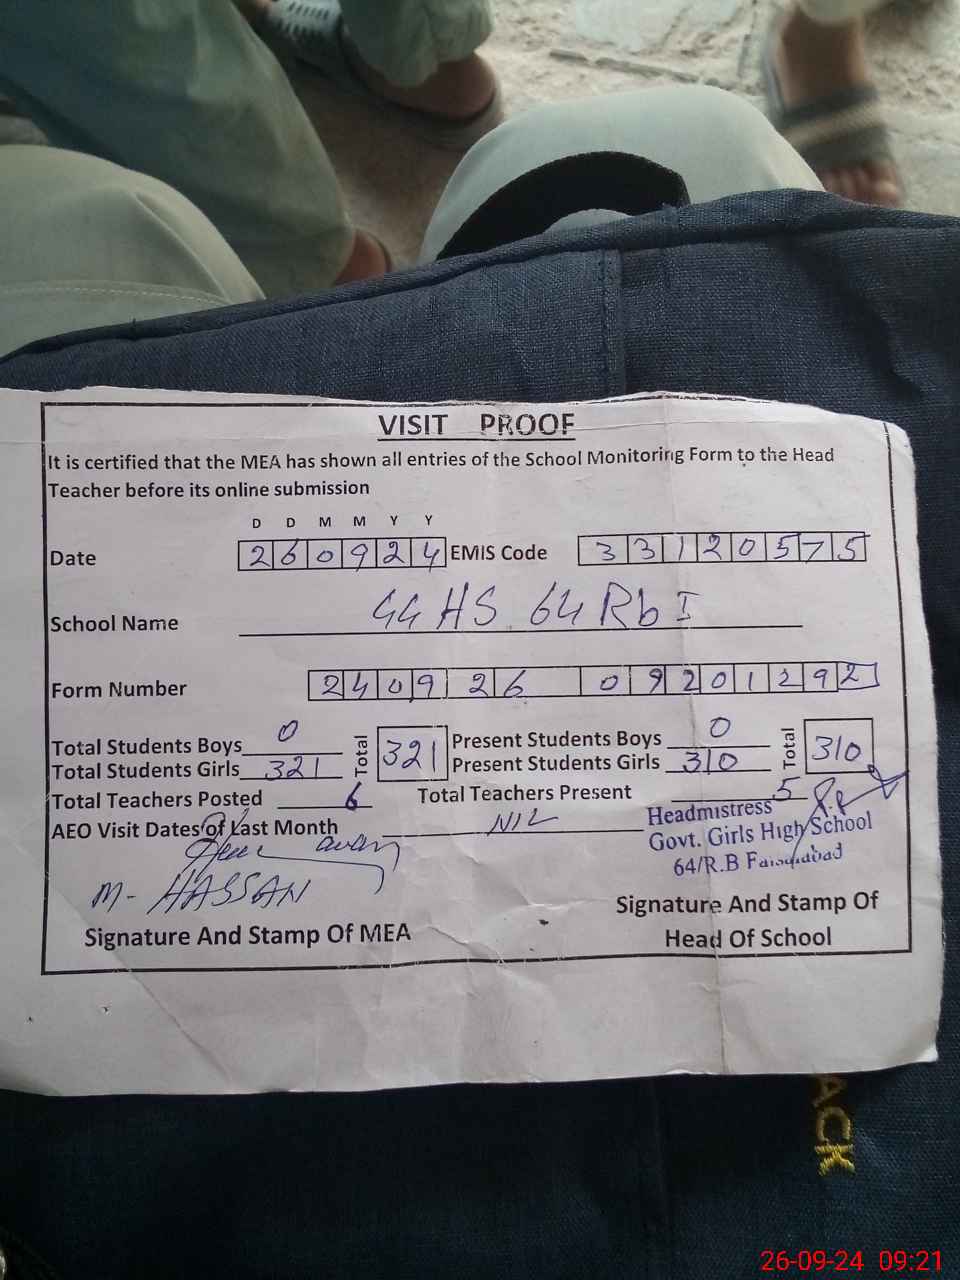 VISIT PROOF
It is certified that the MEA has shown all entries of the School Monitoring Form to the Head
Teacher before its online submission
D D M M Y Y
Date 260924 EMIS Code 33120575
School Name GGHS 64 Rb I
Form Number 240926 09201292
Total Students Boys 0 Total 321 Present Students Boys 0 Total 310
Total Students Girls 321 Present Students Girls 310
Total Teachers Posted 6 Total Teachers Present 5
AEO Visit Dates of Last Month NIL
Headmistress
Govt. Girls High School
64/R.B Faisalabad
M- HASSAN
Signature And Stamp Of MEA
Signature And Stamp Of
Head Of School
ACK
26-09-24 09:21